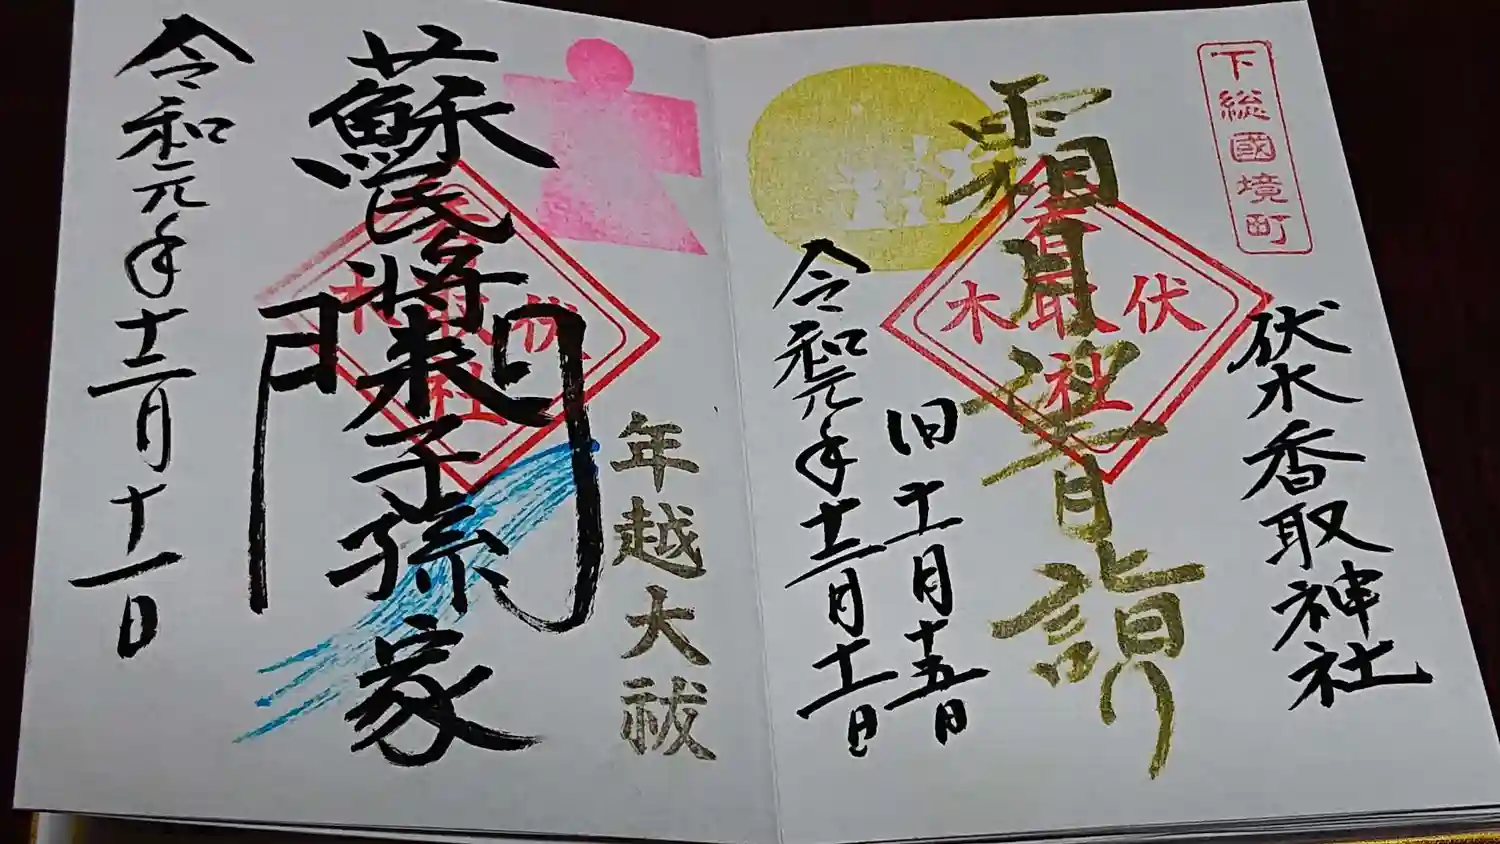 下総國境町
伏木香取神社
霜月
詣り
伏木
香取社
旧十一月十五日
令和元年十二月十一日
年越大祓
蘇民将来子孫家
門
伏木
香取社
令和元年十二月十一日